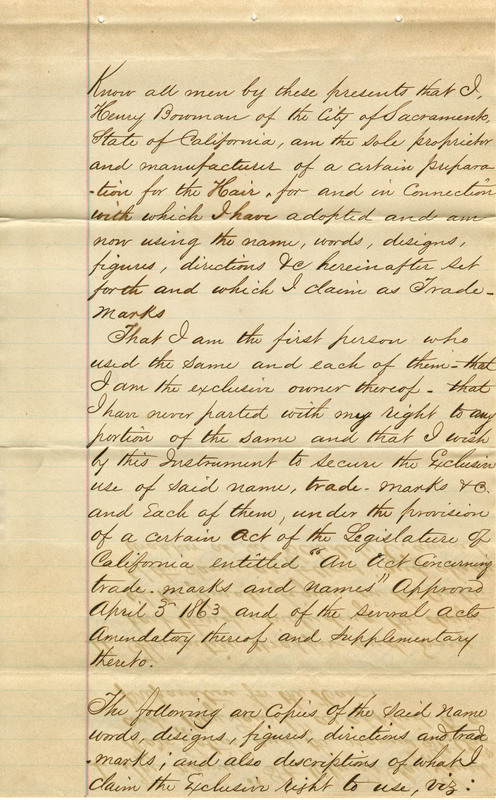 Know all men by these presents that I,
Henry Bowman of the City of Sacramento,
State of California, am the sole proprietor
and manufacturer of a certain prepara
-tion for the Hair, for and in Connection
with which I have adopted and am
now using the name, words, designs,
figures, directions &c hereinafter set
forth and which I claim as Trade-
Marks
That I am the first person who
used the same and each of them - that
I am the exclusive owner thereof - that
I have never parted with my right to any
portion of the same and that I wish
by this Instrument to secure the Exclusive
use of said name, trade-marks &c.
and Each of them, under the provision
of a certain Act of the Legislature of
California entitled "An Act Concerning
trade-marks and names" Approved
April 3d 1863 and of the several acts
Amendatory thereof and Supplementary
thereto.
The following are Copies of the said Name
words, designs, figures, directions and trade
-marks; and also descriptions of what I
claim the Exclusive right to use, viz: